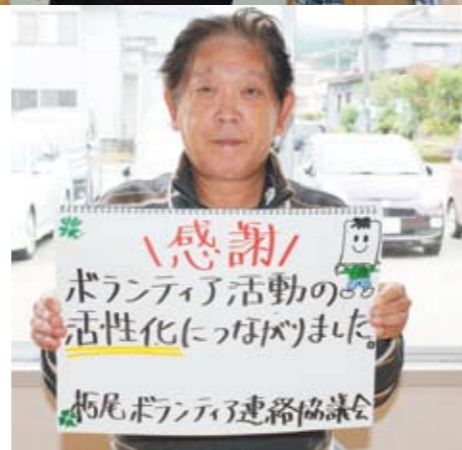 \感謝/
ボランティア活動の
活性化につながりました。
栃尾ボランティア連絡協議会